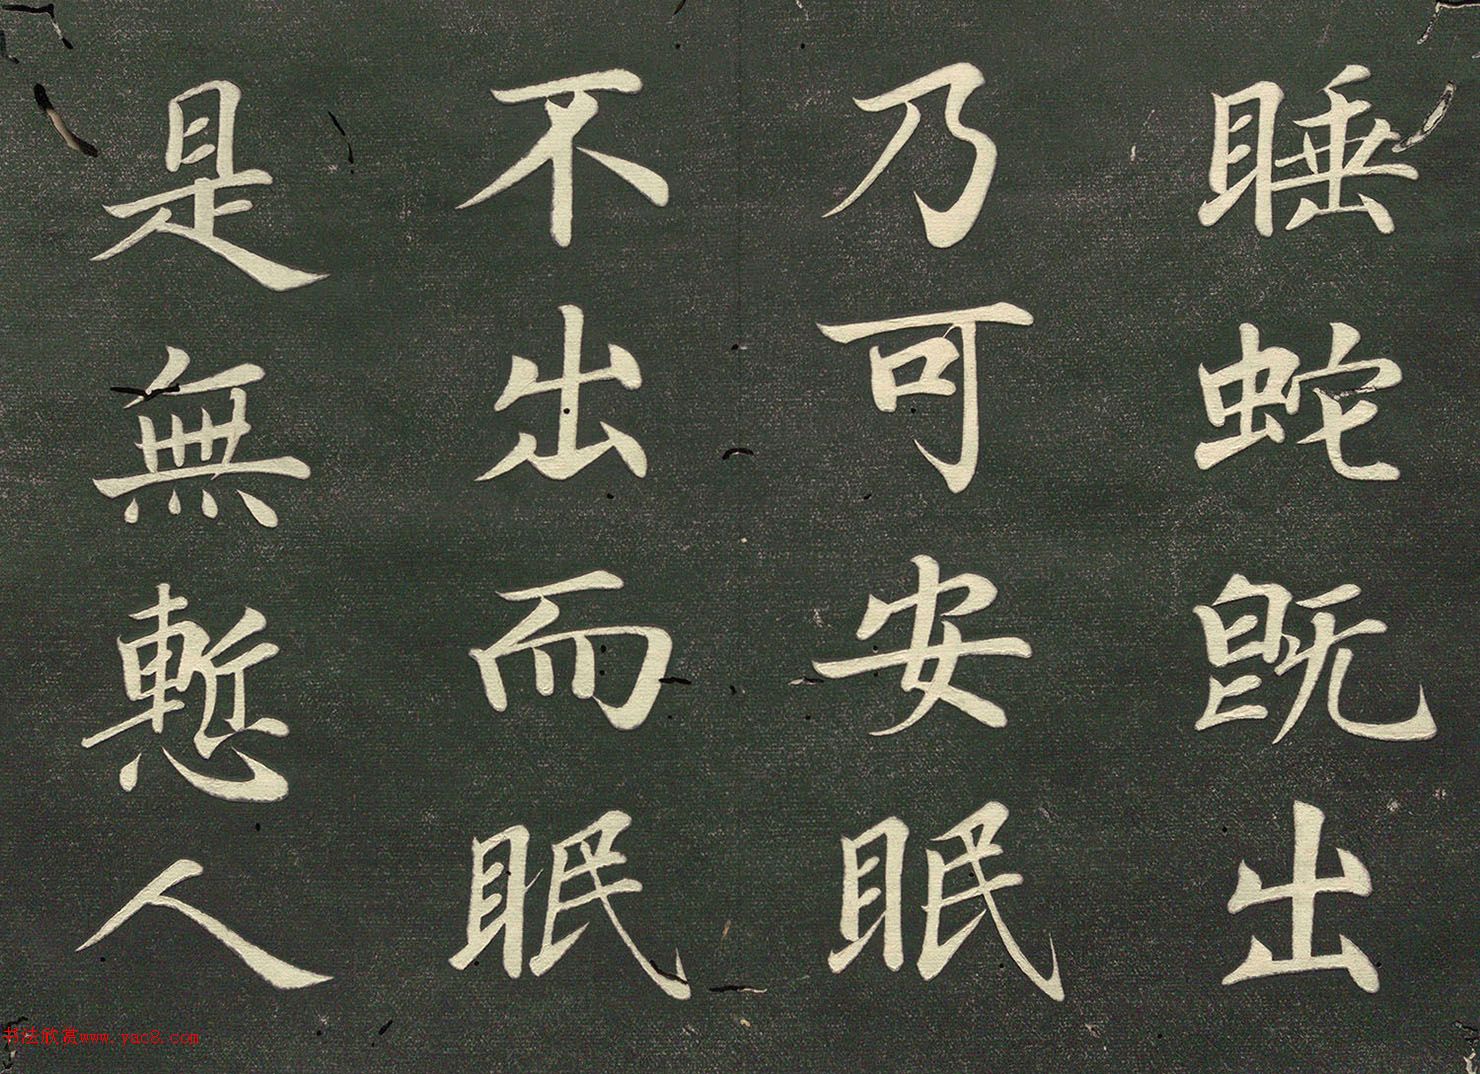 睡蛇既出
乃可安眠
不出而眠
是無慙人
书法欣赏www.yac8.com